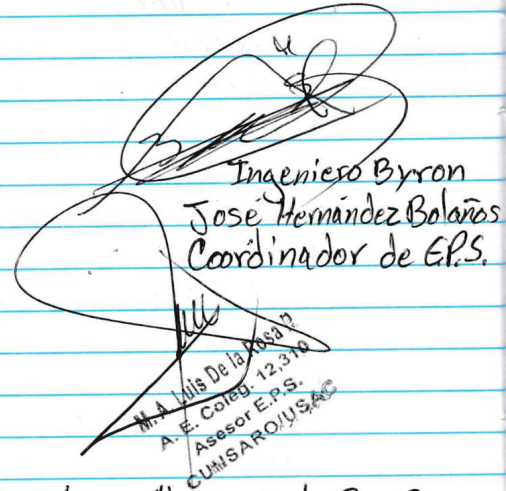 Ingeniero Byron
José Hernández Bolaños
Coordinador de E.P.S.
M. A. Luis De la Rosa
A. E. Coleg. 12,310
Asesor E.P.S.
CUNSARO/USAC